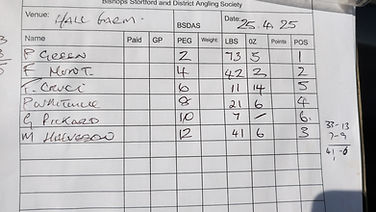 Bishops Stortford and District Angling Society
Venue: HALL FARM. BSDAS Date: 25.4.25
Name Paid GP PEG Weight LBS OZ Points POS
P GREEN 2 73 5 1
F 4 42 2 2
T. 6 11 14 5
P WHITEHALL 8 21 6 4
G PICKARD 10 7 - 6.
M 12 41 6 3
33-13
7-9
41-6